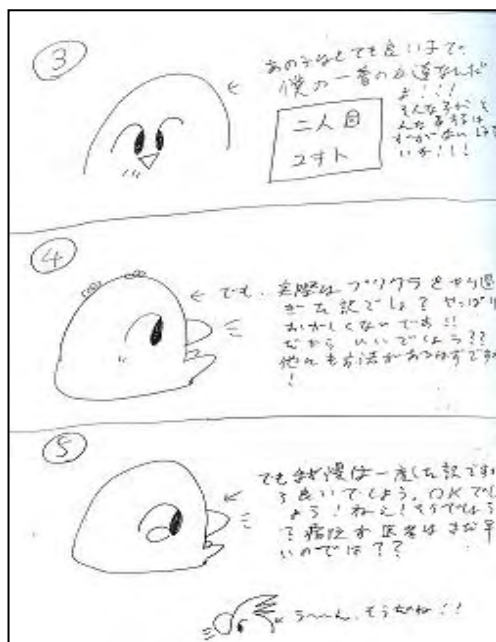 ③
あの子はとても良い子で、
僕の一番の友達なんだ
よ!!!
そんな子がそ
んな事するは
ずがないじゃな
いか!!!
二人目
ユオト
④
でも、実際は プリクラ をやり過
ぎた訳でしょ? やっぱり
おかしくないです!!
だから いいでしょう??
他にも方法があるはずですか
!
⑤
でもまだ僕は一度した訳ですか
ら良いでしょう。OKでし
ょう!ねえ!そうでしょう
? 病院や医者はまだ早
いのでは??
う〜ん、そうだね!!